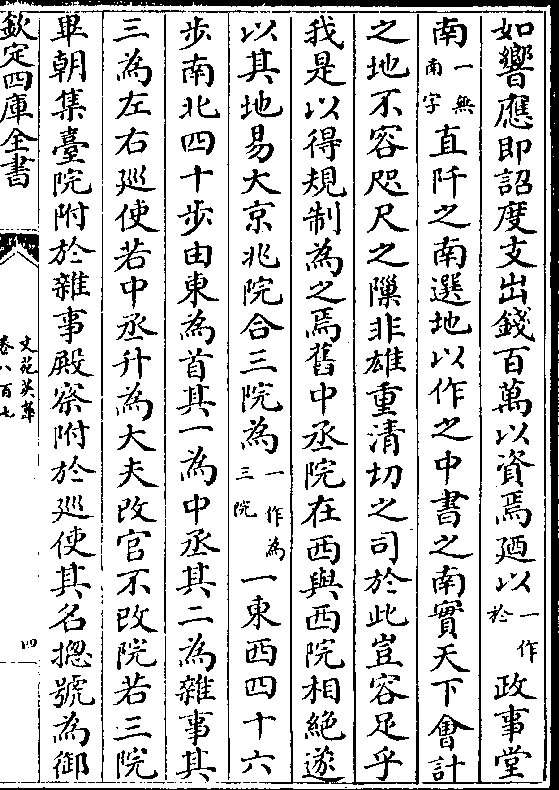 如響應即詔度支出錢百萬以資焉廼以一作於政事堂
南一無南字直阡之南選地以作之中書之南實天下會計
之地不容咫尺之隟非雄重清切之司於此豈容足乎
我是以得規制為之焉舊中丞院在西與西院相絕遂
以其地易大京兆院合三院為一作為三院一東西四十六
步南北四十步由東為首其一為中丞其二為雜事其
三為左右廵使若中丞升為大夫改官不改院若三院
畢朝集臺院附於雜事殿察附於廵使其名揔號為御
欽定四庫全書
文苑英華
卷八百七
四